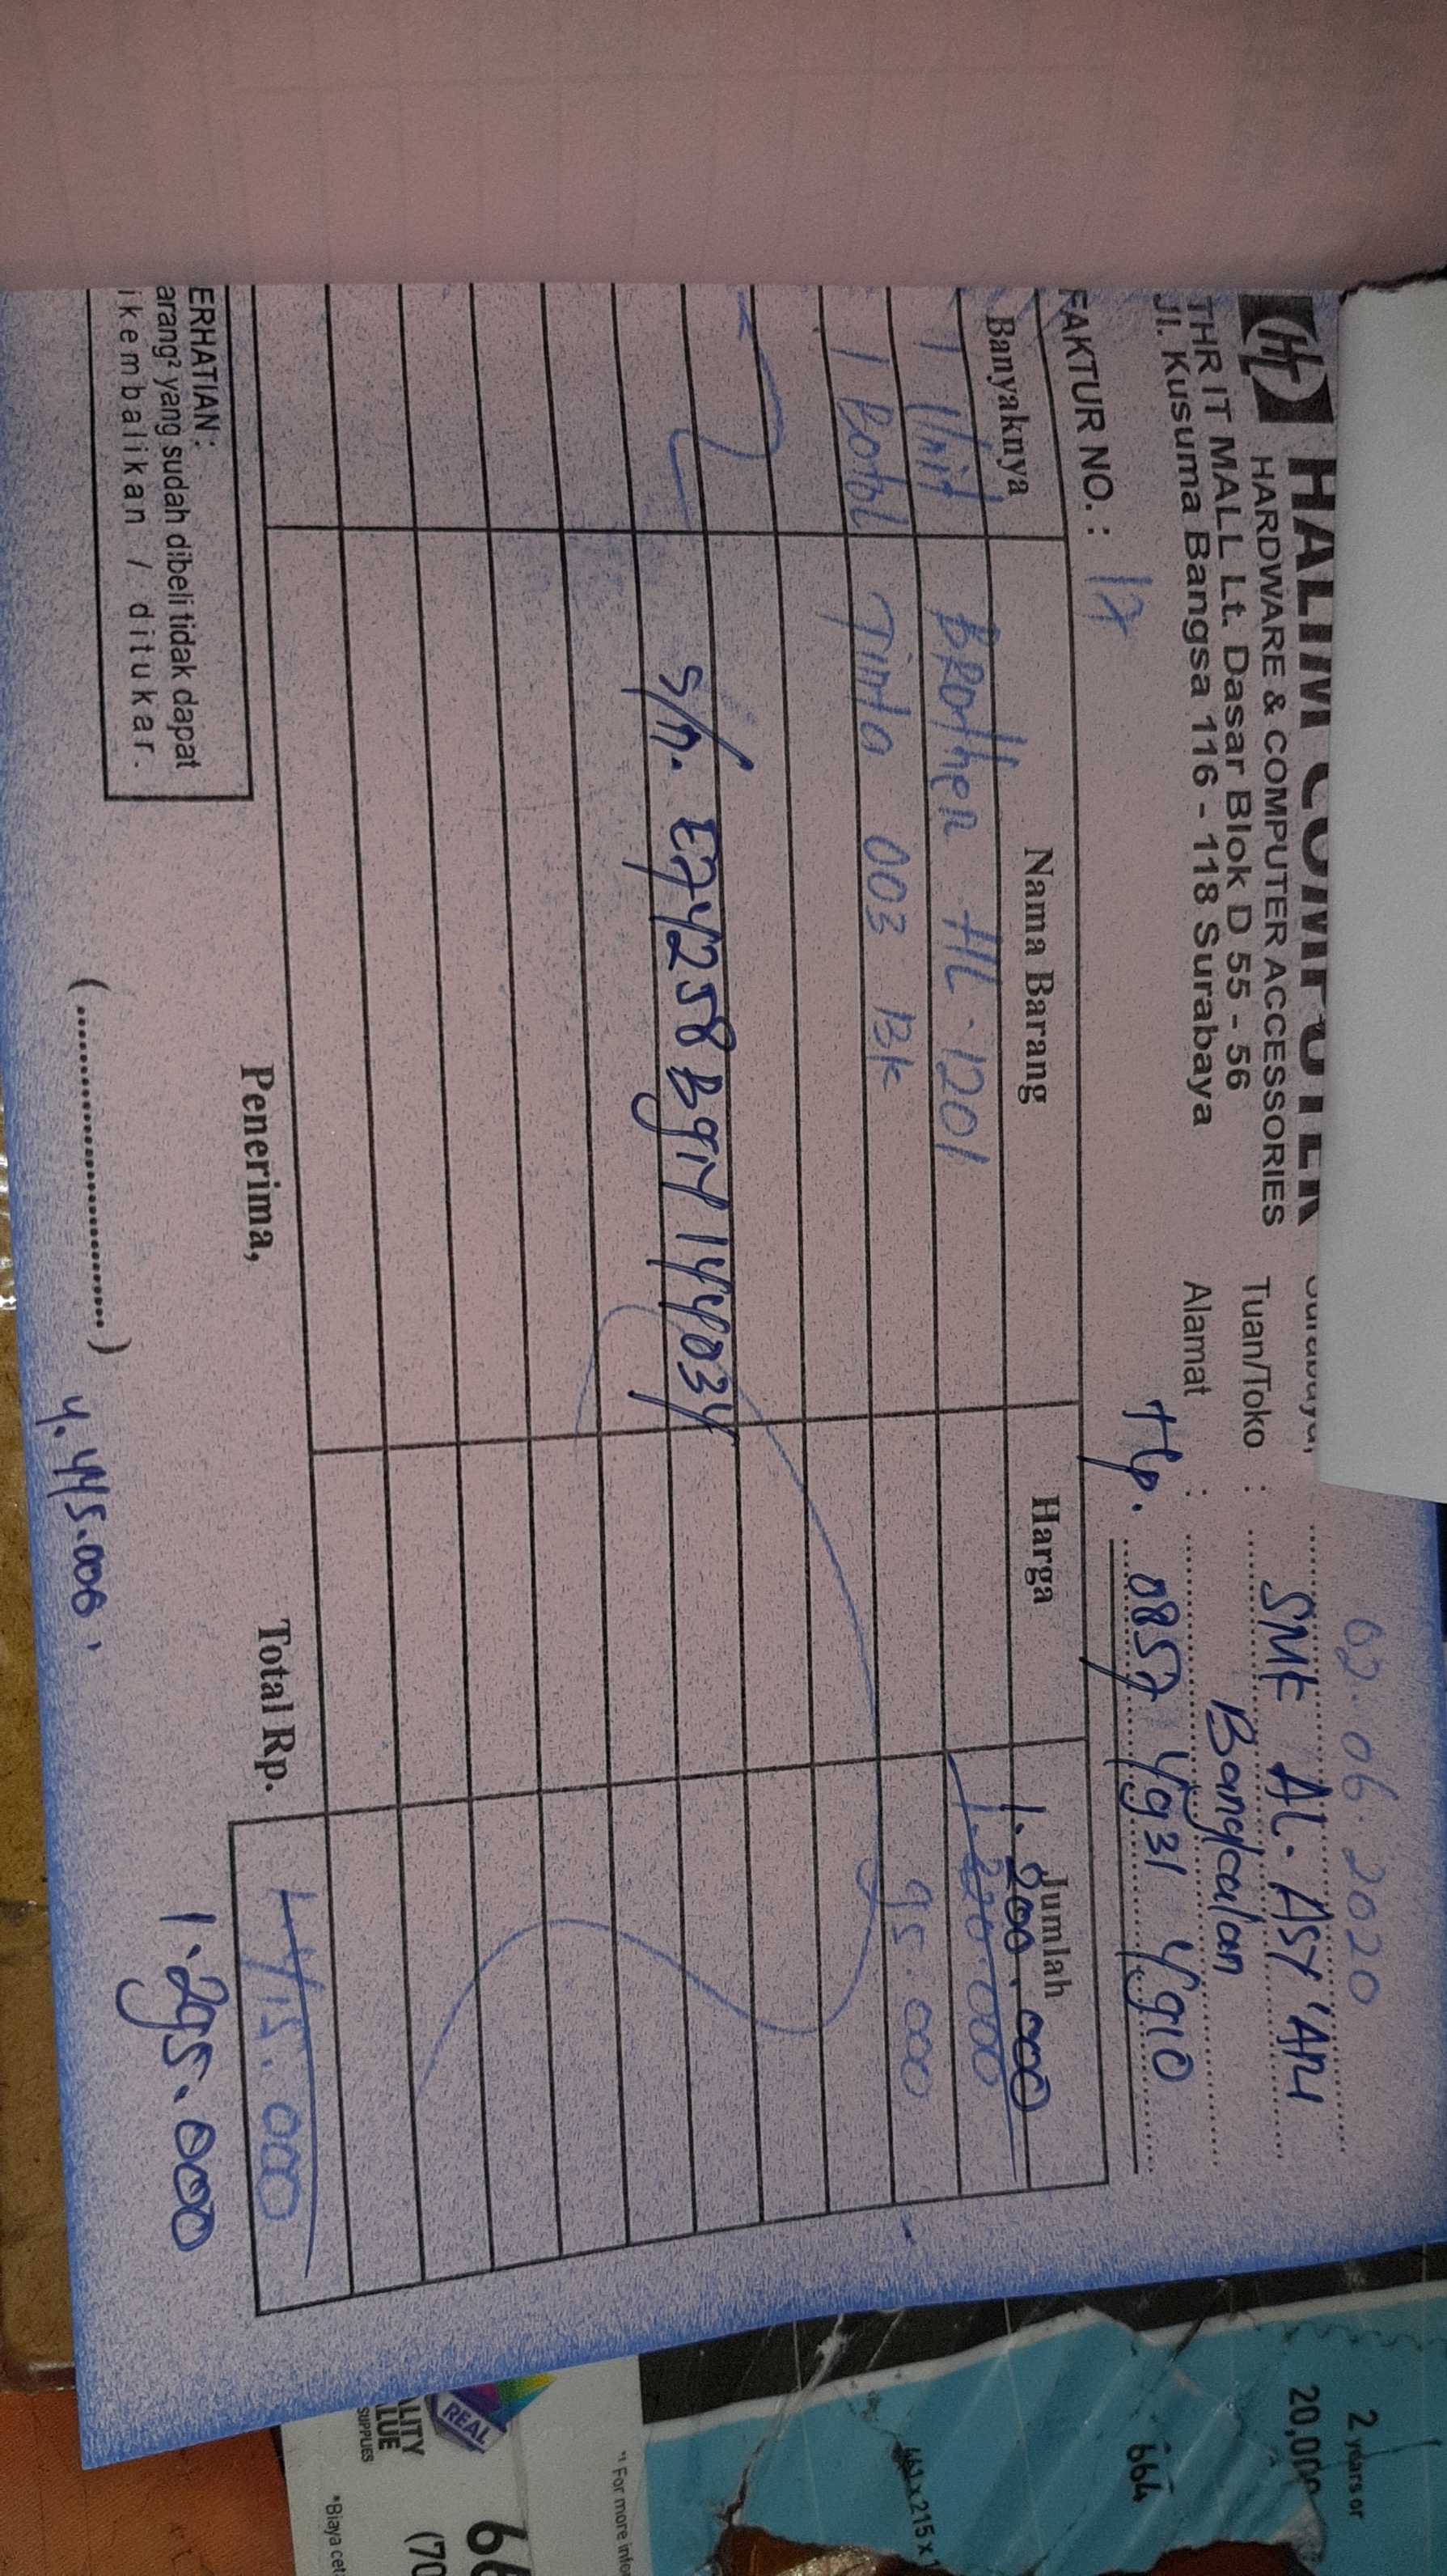 HALIM COMPUTER
HARDWARE & COMPUTER ACCESSORIES
THR IT MALL Lt. Dasar Blok D 55 - 56
Jl. Kusuma Bangsa 116 - 118 Surabaya
02. 06. 2020
Tuan/Toko : SMK AL. ASY'ARI
Alamat : Bangkalan
Hp. 0857 4931 4910
FAKTUR NO. : 17
Banyaknya Nama Barang Harga Jumlah
1.200.000
1 Unit BRother HL-1201
1 Botol Tinta 003 BK 95.000
S/n. E74258
144034
Total Rp.
1.295.000
Penerima,
(..............................)
4.445.000,
ERHATIAN :
arang² yang sudah dibeli tidak dapat
ikembalikan / ditukar.
2 years or
664
REAL
LITY
LUE
SUPPLIES
*Biaya cet
(70